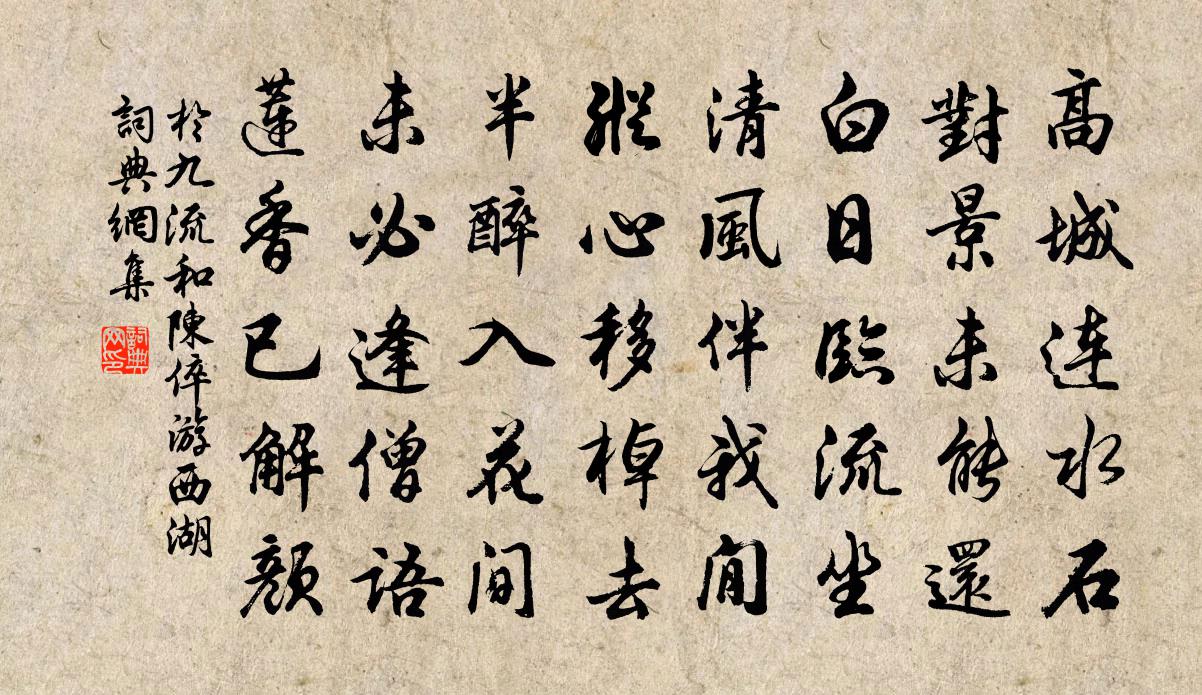 高城連水石
對景未能還
白日臨流坐
清風伴我閒
縱心移棹去
半醉入花間
未必逢僧語
蓮香已解顏
於九流和陳倅游西湖
詞典網集
詞典網印